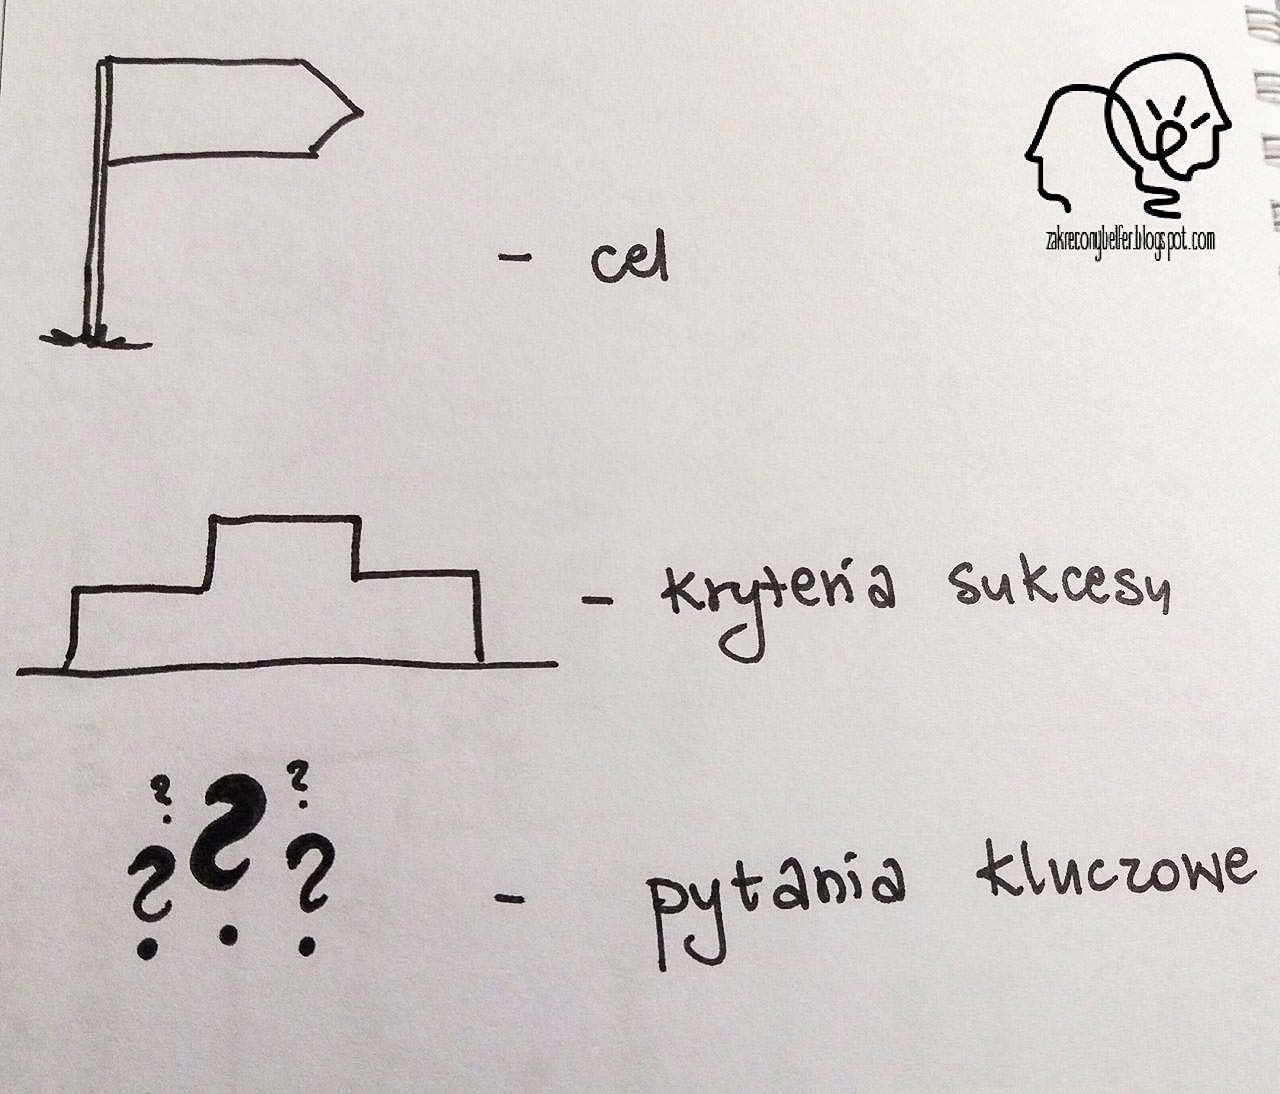 zakreconybelfer.blogspot.com
- cel
- kryteria sukcesu
- pytania kluczowe